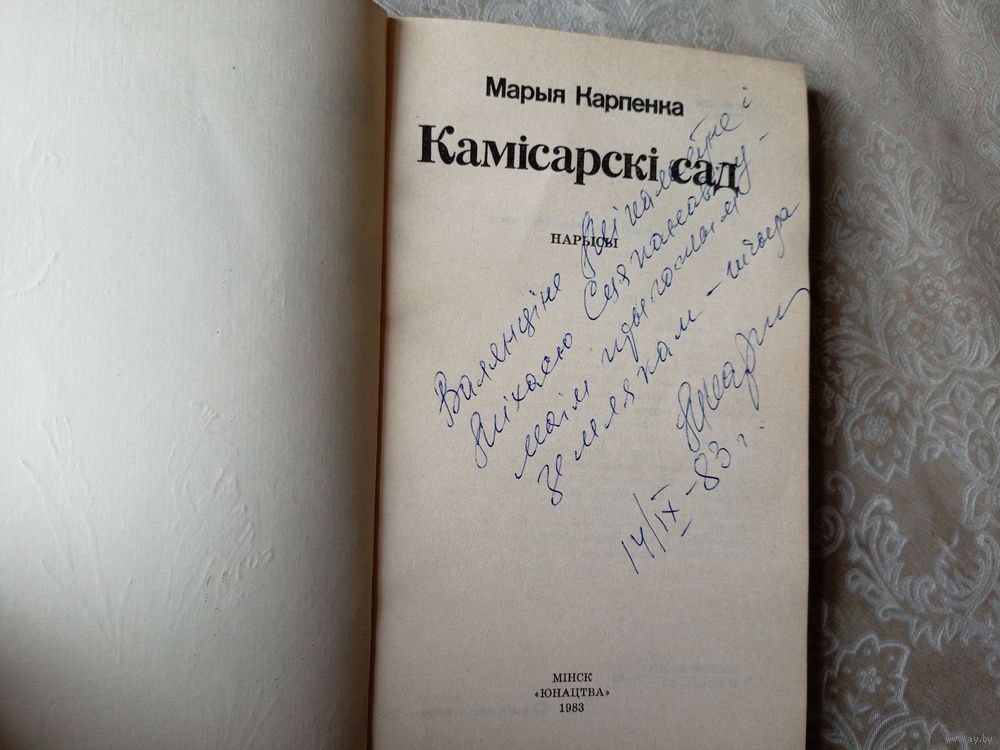 Марыя Карпенка
Камісарскі сад
НАРЫСЫ
Валянціне Мікалаеўне і
Міхасю Сцяпанавічу -
маім прыгожым
землякам - шчыра
14/IX-83 г.
МІНСК
«ЮНАЦТВА»
1983
ay.by